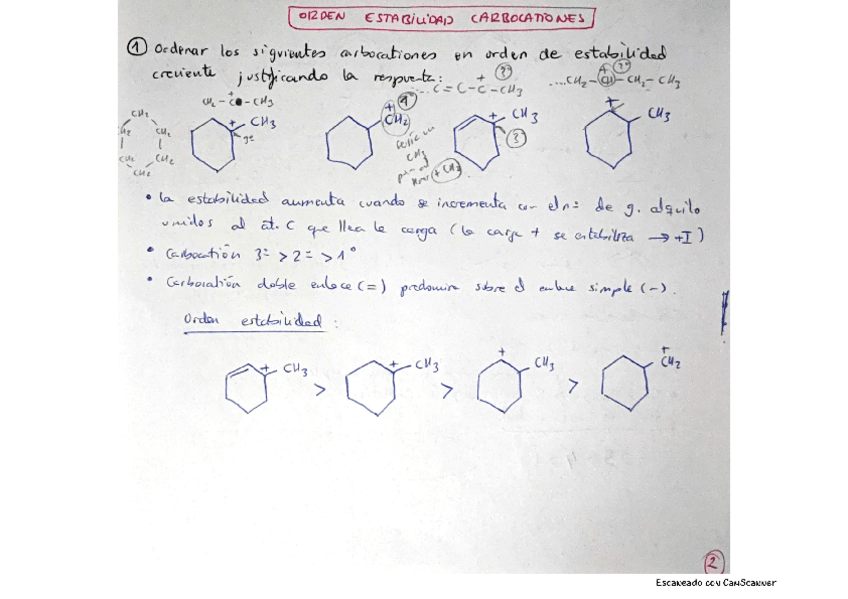 ORDEN ESTABILIDAD CARBOCATIONES
① Ordenar los siguientes carbocationes en orden de estabilidad
creciente justificando la respuesta:
C=C-C-CH3
+
...CH2-CH-CH2-CH3
+
CH3
+
CH2
+
1º
CH3
+
3º
CH3
+
• La estabilidad aumenta cuando se incrementa con el nº de g. alquilo
unidos al át. C que lleva la carga (la carga + se estabiliza → +I)
• Carbocatión 3º > 2º > 1º
• Carbocatión doble enlace (=) predomina sobre el enlace simple (-).
Orden estabilidad:
+ CH3 > + CH3 > + CH3 > + CH2
2
Escaneado con CamScanner